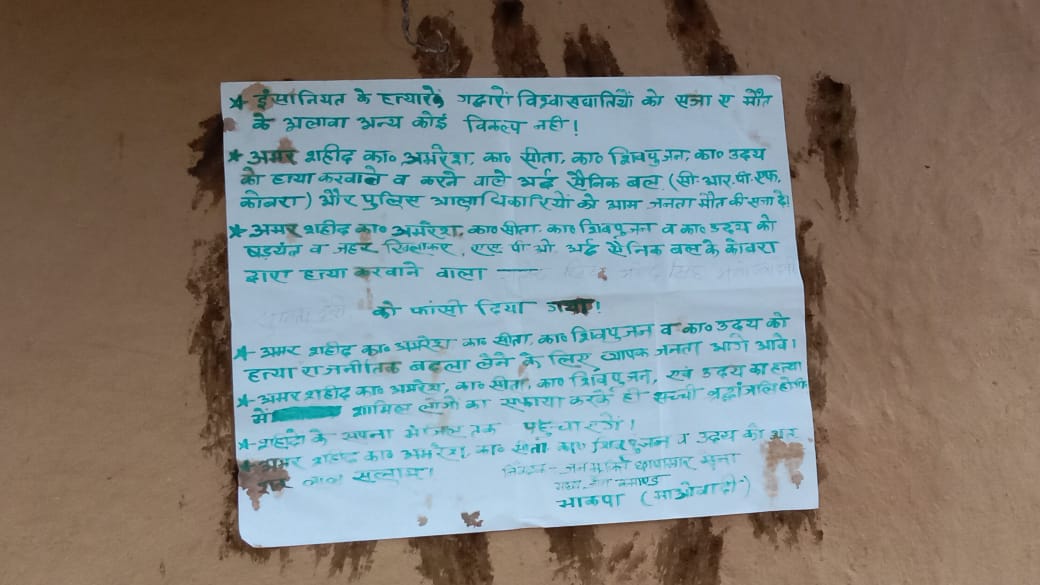 ★ इंसानियत के हत्यारों गद्दारों विश्वासघातियों को सजा ए मौत
के अलावा अन्य कोई विकल्प नहीं!
★ अमर शहीद का० अमरेश, का० सीता, का० शिवपुजन, का० उदय
को हत्या करवाले व करने वाले अर्द्ध सैनिक बल (सी.आर.पी.एफ,
कोबरा) और पुलिस आलाधिकारियों को आम जनता मौत की सजा दें!
★ अमर शहीद का० अमरेश, का० सीता, का० शिवपुजन व का० उदय को
षडयंत्र व जहर खिलाकर, एस पी ओ अर्द्ध सैनिक बल के कोबरा
द्वारा हत्या करवाने वाला
को फांसी दिया गया!
★ अमर शहीद का० अमरेश, का० सीता, का० शिवपुजन व का० उदय को
हत्या राजनीतिक बदला लेने के लिए व्यापक जनता आगे आवें।
★ अमर शहीद का० अमरेश, का० सीता, का० शिवपुजन, एवं उदय का हत्या
में शामिल लोगों का सफाया करके ही सच्ची श्रद्धांजलि होगी
★ शहीदों के सपना मंजिल तक पहुचाएगें।
★ अमर शहीद का० अमरेश, का० सीता, का० शिवपुजन व उदय को
लाल सलाम।
निवेदक - जनमुक्ति छापामार सेना
भाकपा (माओवादी)